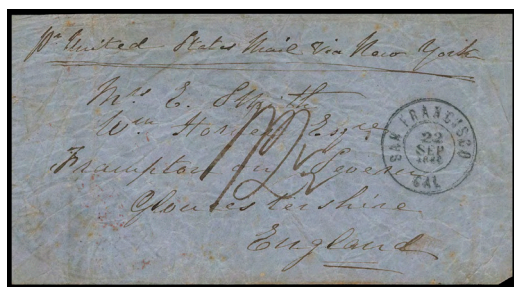 Pr United States Mail Via New York
Mrs E. Smith
Wm Esqre
Frampton on Severn
Gloucestershire
England
SAN FRANCISCO
22
SEP
CAL